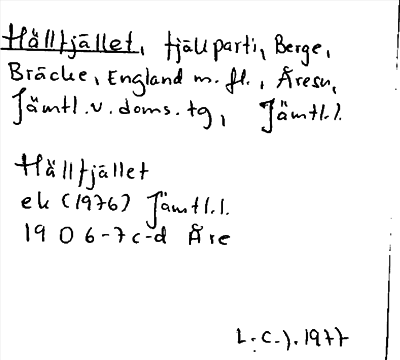 Hållfjället, fjällparti, Berge,
Bräcke, England m. fl., Åresn,
Jämtl.v.doms.tg, Jämtl.l.
Hållfjället
ek (1976) Jämtl.l.
19 0 6-7c-d Åre
L.C.J. 1977